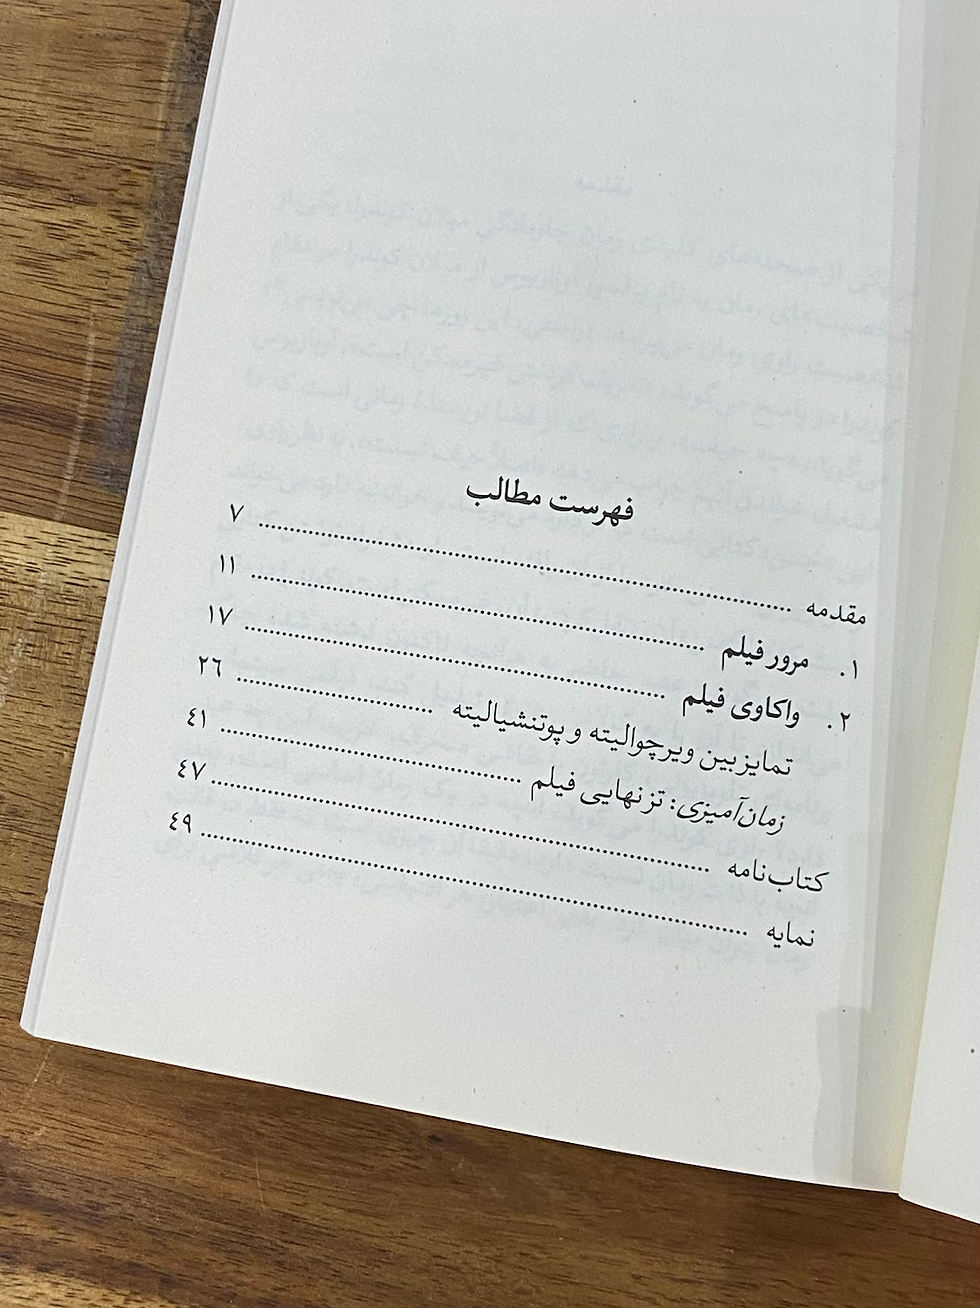 فهرست مطالب
مقدمه ........................................................ ۷
۱. مرور فیلم ................................................ ۱۱
۲. واکاوی فیلم ............................................ ۱۷
تمایز بین ویرچوالیته و پوتنشیالیته .................... ۲۶
زمان‌آمیزی: تز نهایی فیلم ................................ ۴۱
کتاب‌نامه .................................................... ۴۷
نمایه .......................................................... ۴۹